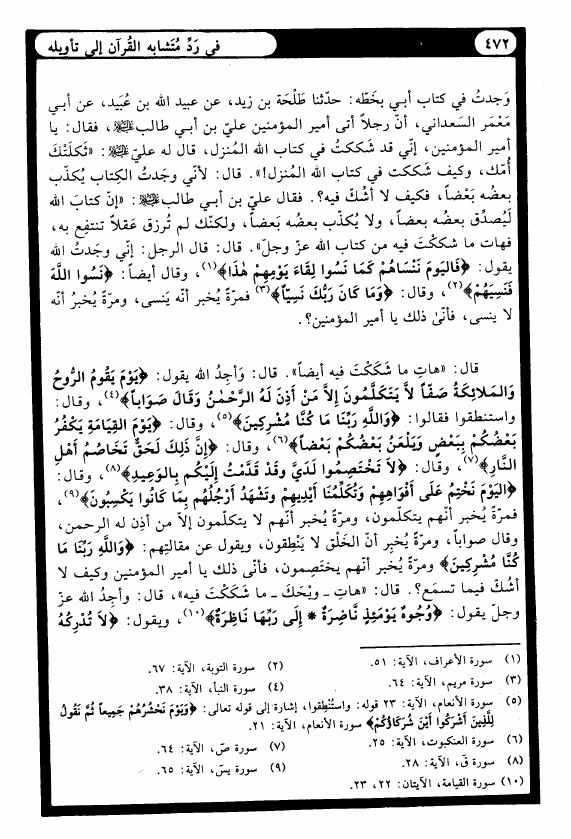 ٤٧٢
في رَدِّ مُتَشابه القُرآن إلى تأويله
وَجدتُ في كتاب أبي بخَطّه: حدّثنا طَلْحَة بن زيد، عن عبيد الله بن عُبَيد، عن أبي
مَعْمَر السَعداني، أنّ رجلاً أتى أمير المؤمنين عليّ بن أبي طالبﷺ، فقال: يا
أمير المؤمنين، إنّي قد شَككتُ في كتاب الله المُنزل، قال له عليّﷺ: «ثَكلَتْكَ
أُمّك، وكيف شَككت في كتاب الله المُنزل!». قال: لأنّي وجَدتُ الكِتاب يُكذّب
بعضُه بَعْضاً، فكيف لا أشُكّ فيه؟. فقال عليّ بن أبي طالبﷺ: «إنّ كتابَ الله
لَيُصدِّق بعضُه بعضاً، ولا يُكذّب بعضُه بَعضاً، ولكنّك لم تُرزق عَقلاً تنتفِع به،
فهات ما شككْتَ فيه من كتاب الله عزّ وجلّ». قال: قال الرجل: إنّي وجَدتُ الله
يقول: ﴿فَالْيَومَ نَنْسَاهُمْ كَمَا نَسُوا لِقَاءَ يَوْمِهِمْ هٰذَا﴾(١)، وقال أيضاً: ﴿نَسُوا اللَّهَ
فَنَسِيَهُمْ﴾(٢)، وقال: ﴿وَمَا كَانَ رَبُّكَ نَسِيّاً﴾(٣) فمرّةً يُخبر أنّه يَنسى، ومرّةً يُخبرُ أنّه
لا ينسى، فأنّىٰ ذلك يا أمير المؤمنين؟.
قال: «هاتِ ما شَكَكْتَ فيه أيضاً». قال: وَأجِدُ الله يقول: ﴿يَوْمَ يَقُومُ الرُّوحُ
وَالمَلائِكَةُ صَفّاً لاَّ يَتَكَلَّمُونَ إلاَّ مَنْ أذِنَ لَهُ الرَّحْمٰنُ وَقَالَ صَوَاباً﴾(٤)، وقال:
واستنطقوا فقالوا: ﴿وَاللَّهِ رَبِّنَا مَا كُنَّا مُشْرِكِينَ﴾(٥)، وقال: ﴿يَوْمَ القِيَامَةِ يَكْفُرُ
بَعْضُكُمْ بِبَعضٍ وَيَلْعَنُ بَعْضُكُمْ بَعْضاً﴾(٦)، وقال: ﴿إنَّ ذَلِكَ لَحَقٌّ تَخَاصُمُ أهْلِ
النَّارِ﴾(٧)، وقال: ﴿لاَ تَخْتَصِمُوا لَدَيَّ وقَدْ قَدَّمْتُ إلَيْكُم بِالوَعِيدِ﴾(٨)، وقال:
﴿اليَوْمَ نَخْتِمُ عَلَى أفْوَاهِهِمْ وَتُكَلِّمُنَا أيْدِيهِمْ وتَشْهَدُ أرْجُلُهُم بِمَا كَانُوا يَكْسِبُونَ﴾(٩)،
فمرّةً يُخبر أنّهم يتكلّمون، ومرّةً يُخبر أنّهم لا يتكلمون إلاّ من أذِن له الرحمن،
وقال صواباً، ومرّةً يُخبِر أنّ الخَلْق لا يَنْطِقون، ويقول عن مقالتِهم: ﴿وَاللَّهِ رَبِّنَا مَا
كُنَّا مُشْرِكِينَ﴾ ومرّةً يُخبر أنّهم يختَصِمون، فأنّى ذلك يا أمير المؤمنين وكيف لا
أشُكّ فيما تسمَع؟. قال: «هاتِ ـ ويْحَكَ ـ ما شَكَكْتَ فيه»، قال: وأجدُ الله عزّ
وجلّ يقول: ﴿وُجُوهٌ يَوْمَئِذٍ نَاضِرَةٌ * إلَى رَبِّهَا نَاظِرَةٌ﴾(١٠)، ويقول: ﴿لاَ تُدْرِكُهُ
(١) سورة الأعراف، الآية: ٥١.
(٢) سورة التوبة، الآية: ٦٧.
(٣) سورة مريم، الآية: ٦٤.
(٤) سورة النبأ، الآية: ٣٨.
(٥) سورة الأنعام، الآية: ٢٣ قوله: واستُنْطِقوا، إشارة إلى قوله تعالى: ﴿وَيَوْمَ نَحْشُرُهُمْ جَمِيعاً ثُمَّ نَقُولُ
لِلَّذِينَ أشْرَكُوا أيْنَ شُرَكَاؤُكُمْ﴾ سورة الأنعام، الآية: ٢١.
(٦) سورة العنكبوت، الآية: ٢٥.
(٧) سورة صّ، الآية: ٦٤.
(٨) سورة قّ، الآية: ٢٨.
(٩) سورة يسّ، الآية: ٦٥.
(١٠) سورة القيامة، الآيتان: ٢٢، ٢٣.